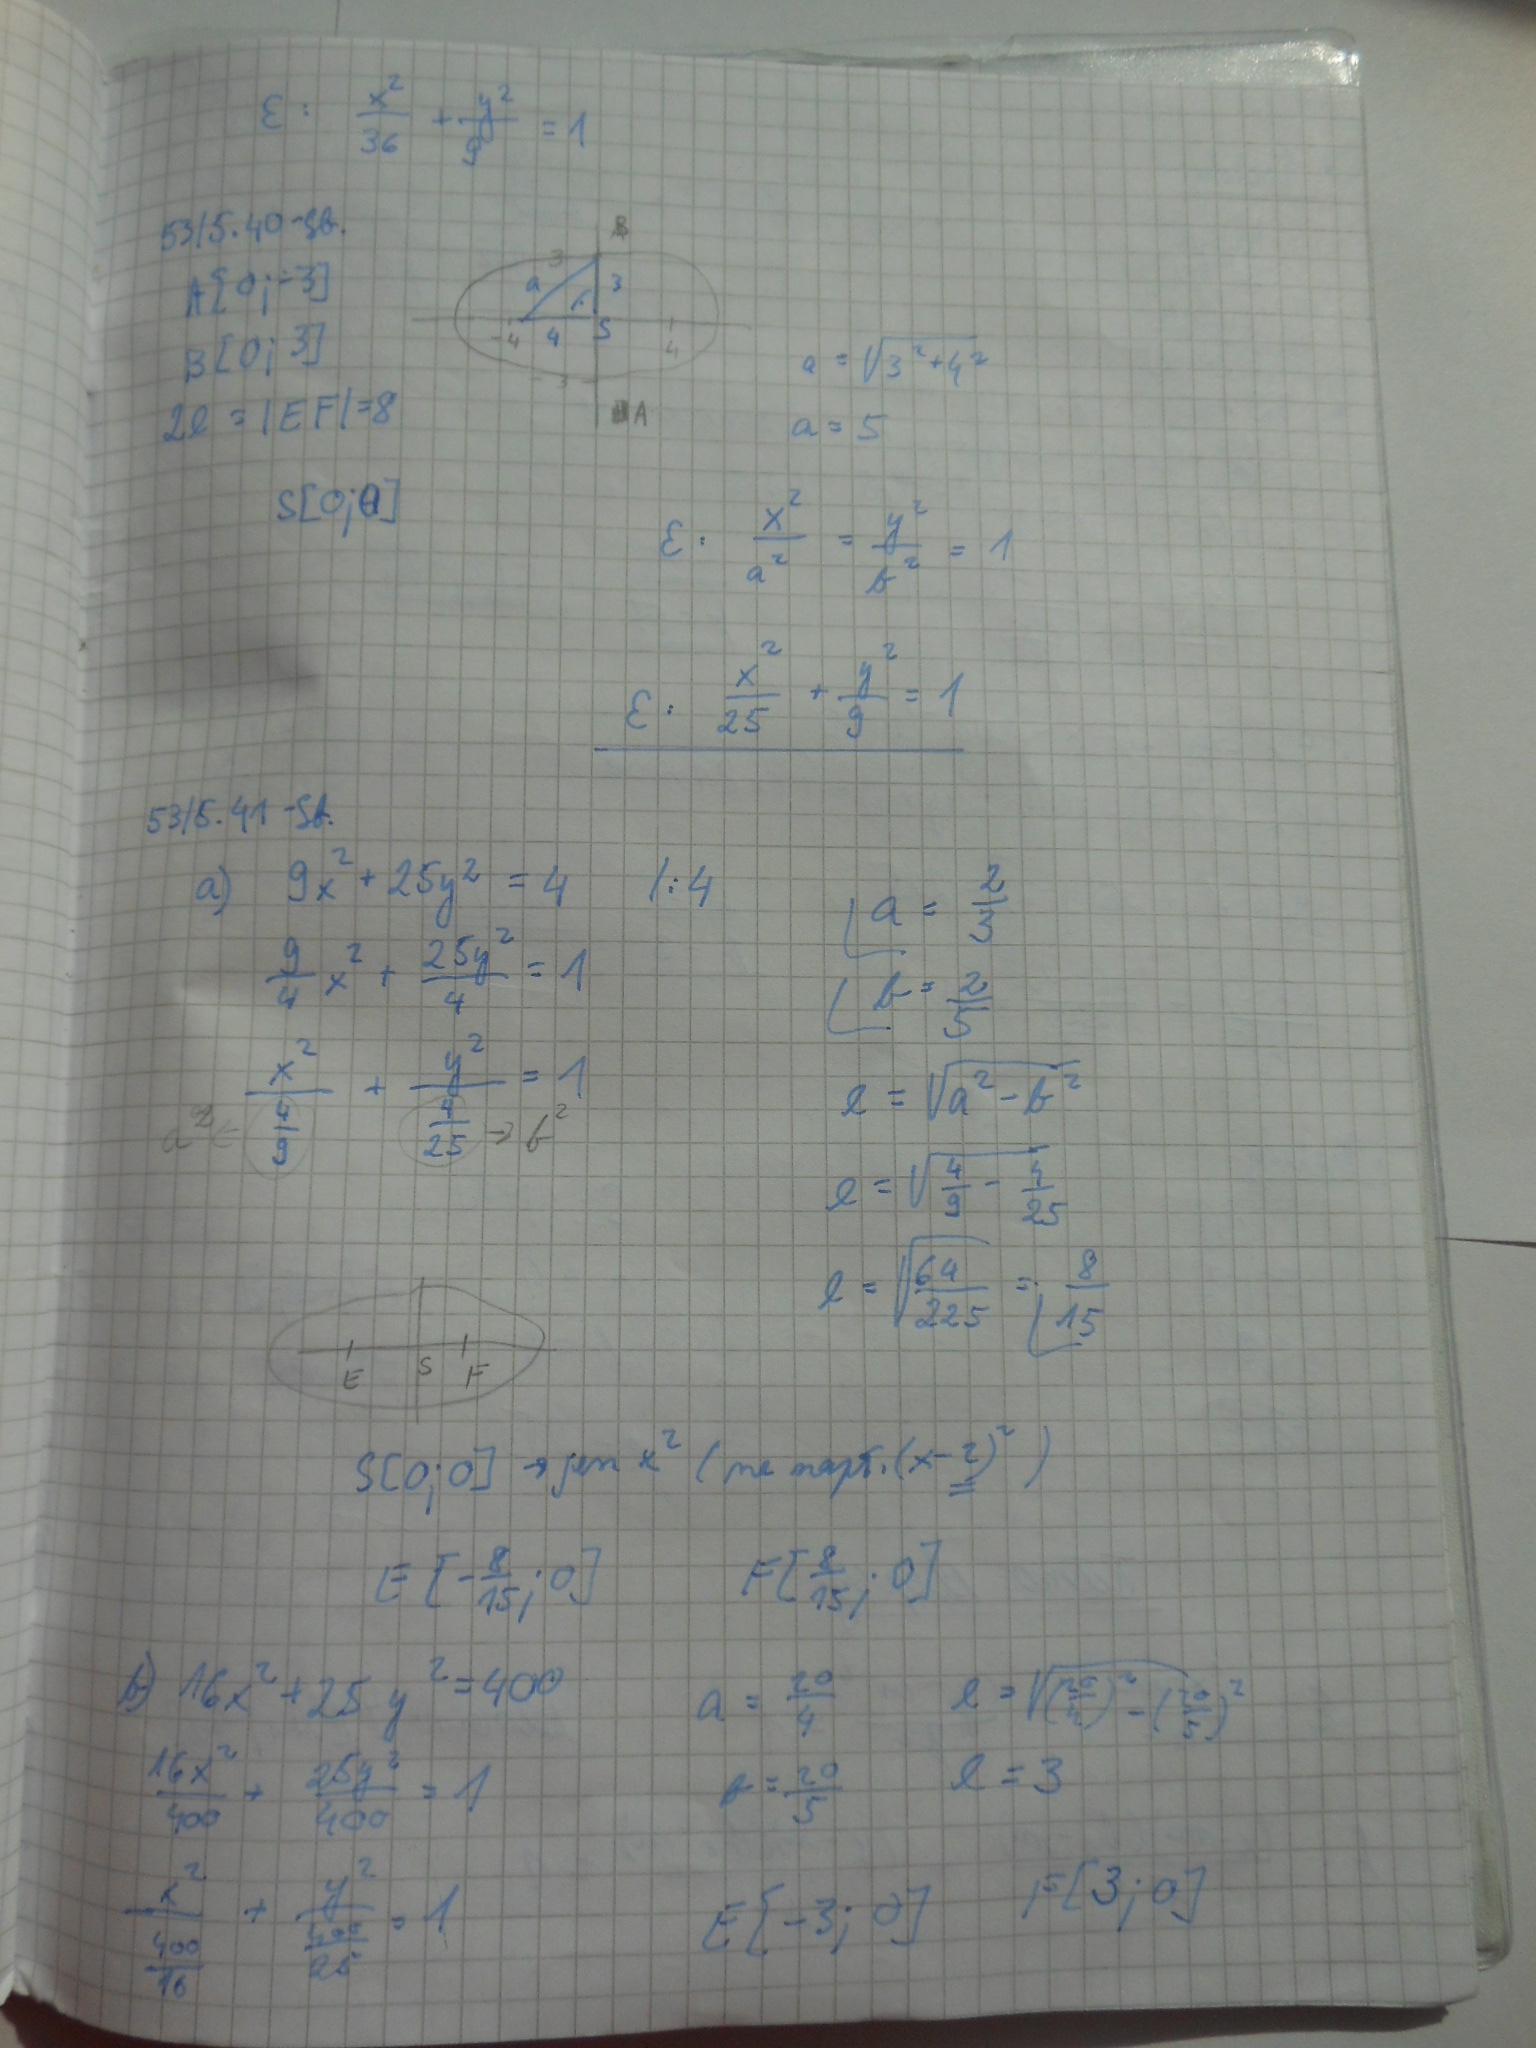 ε: x²/36 + y²/9 = 1
53/5.40 - Sb.
A[0; -3]
B[0; 3]
2e = |EF| = 8
S[0; 0]
B
3
a 3
-4 4 S 4
-3
A
a = √(3² + 4²)
a = 5
ε: x²/a² = y²/b² = 1
ε: x²/25 + y²/9 = 1
53/5.41 - Sb.
a) 9x² + 25y² = 4 /:4
9/4 x² + 25y²/4 = 1
x²/(4/9) + y²/(4/25) = 1
a² ← → b²
a = 2/3
b = 2/5
e = √(a² - b²)
e = √(4/9 - 4/25)
e = √(64/225) = 8/15
E S F
S[0; 0] → jen x² (ne např. (x-2)²)
E[-8/15; 0] F[8/15; 0]
b) 16x² + 25y² = 400
16x²/400 + 25y²/400 = 1
x²/(400/16) + y²/(400/25) = 1
a = 20/4
b = 20/5
e = √((20/4)² - (20/5)²)
e = 3
E[-3; 0] F[3; 0]